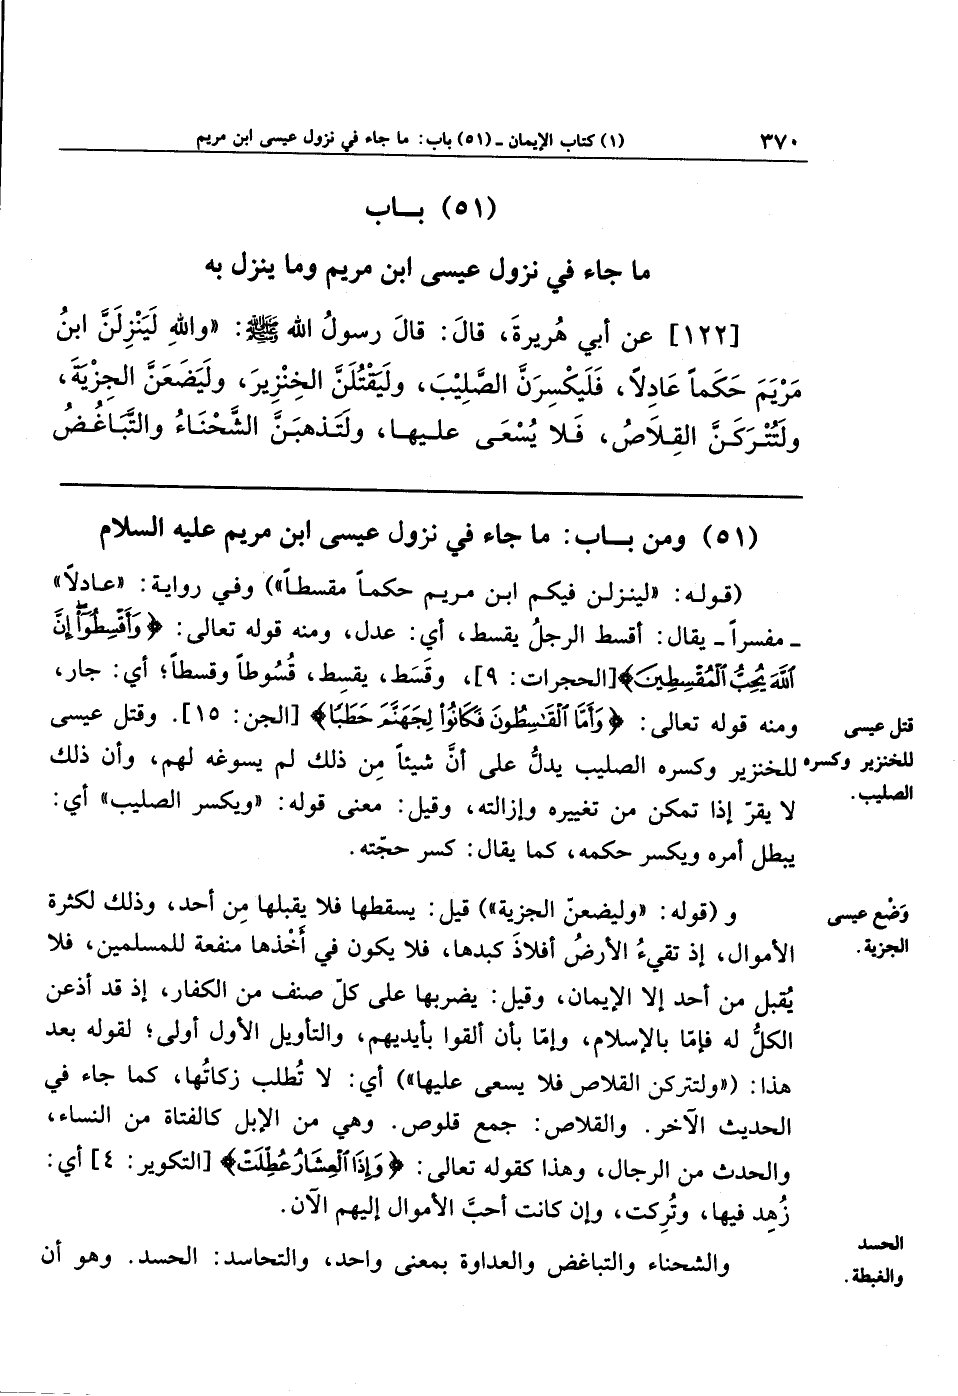 ٣٧٠ (١) كتاب الإيمان ـ (٥١) باب: ما جاء في نزول عيسى ابن مريم
(٥١) بـــاب
ما جاء في نزول عيسى ابن مريم وما ينزل به
[١٢٢] عن أبي هُريرةَ، قالَ: قالَ رسولُ الله ﷺ: «واللهِ لَيَنْزِلَنَّ ابنُ
مَرْيَمَ حَكَماً عَادِلاً، فَلَيكْسِرَنَّ الصَّلِيْبَ، ولَيَقْتُلَنَّ الخِنْزِيرَ، ولَيَضَعَنَّ الجِزْيَةَ،
ولَتُتْرَكَنَّ القِلَاصُ، فَلا يُسْعَى عليـها، ولَتَذهبَنَّ الشَّحْنَاءُ والتَّبَاغُضُ
(٥١) ومن بـــاب: ما جاء في نزول عيسى ابن مريم عليه السلام
(قوله: «لينزلن فيكم ابن مريم حكماً مقسطاً») وفي رواية: «عادلاً»
ـ مفسراً ـ يقال: أقسط الرجلُ يقسط، أي: عدل، ومنه قوله تعالى: ﴿وَأَقْسِطُوٓا۟ إِنَّ
ٱللَّهَ يُحِبُّ ٱلْمُقْسِطِينَ﴾ [الحجرات: ٩]، وقَسَط، يقسِط، قُسُوطاً وقسطاً؛ أي: جار،
ومنه قوله تعالى: ﴿وَأَمَّا ٱلْقَـٰسِطُونَ فَكَانُوا۟ لِجَهَنَّمَ حَطَبًا﴾ [الجن: ١٥]. وقتل عيسى
قتل عيسى
للخنزير وكسره الصليب يدلُّ على أنَّ شيئاً مِن ذلك لم يسوغه لهم، وأن ذلك
للخنزير وكسره
لا يقرّ إذا تمكن من تغييره وإزالته، وقيل: معنى قوله: «ويكسر الصليب» أي:
الصليب.
يبطل أمره ويكسر حكمه، كما يقال: كسر حجّته.
و (قوله: «وليضعنّ الجزية») قيل: يسقطها فلا يقبلها مِن أحد، وذلك لكثرة
وَضْع عيسى
الأموال، إذ تقيءُ الأرضُ أفلاذَ كبدها، فلا يكون في أَخْذها منفعة للمسلمين، فلا
الجزية.
يُقبل من أحد إلا الإيمان، وقيل: يضربها على كلّ صنف من الكفار، إذ قد أذعن
الكلُّ له فإمّا بالإسلام، وإمّا بأن ألقوا بأيديهم، والتأويل الأول أولى؛ لقوله بعد
هذا: («ولتتركن القلاص فلا يسعى عليها») أي: لا تُطلب زكاتُها، كما جاء في
الحديث الآخر. والقلاص: جمع قلوص. وهي من الإبل كالفتاة من النساء،
والحدث من الرجال، وهذا كقوله تعالى: ﴿وَإِذَا ٱلْعِشَارُ عُطِّلَتْ﴾ [التكوير: ٤] أي:
زُهِد فيها، وتُرِكت، وإن كانت أحبَّ الأموال إليهم الآن.
والشحناء والتباغض والعداوة بمعنى واحد، والتحاسد: الحسد. وهو أن
الحسد
والغبطة.